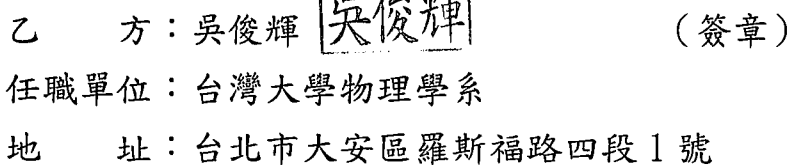 乙　　方：吳俊輝 吳俊輝 （簽章）
任職單位：台灣大學物理學系
地　　址：台北市大安區羅斯福路四段1號